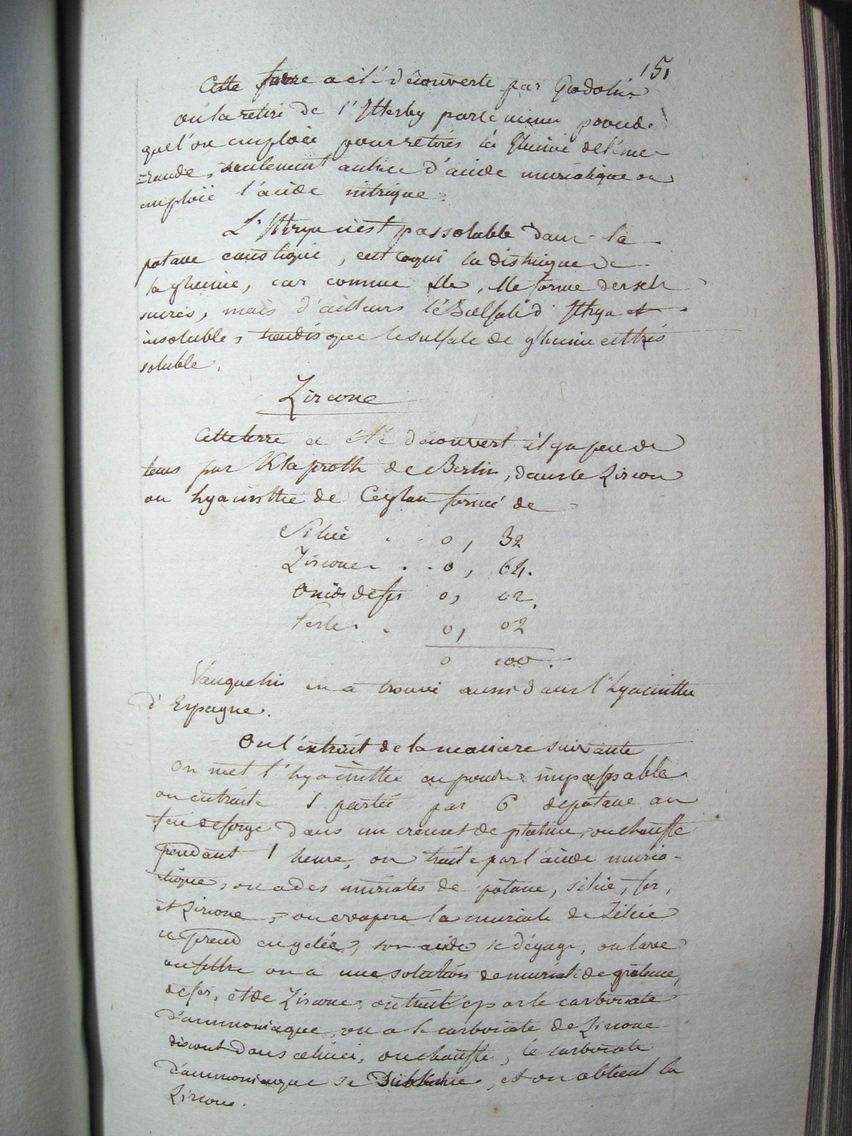 151
Cette terre a été découverte par Gadolin
on la retire de l'Itterby par le même procédé
que l'on emploie pour retirer la Glucine de l'éme-
raude, seulement au lieu d'acide muriatique on
emploie l'acide nitrique.
L'Ittrya n'est pas soluble dans la
potasse caustique, c'est ce qui la distingue de
la glucine, car comme elle, elle forme des sels
sucrés, mais d'ailleurs le Sulfate d'Ittrya est
insoluble, tandis que le sulfate de glucine est très
soluble.
Zircone
Cette terre a été découvert il y a peu de
tems par Klaproth de Berlin, dans le Zircon
ou hyacinthe de Ceylan formé de
Silice . . 0, 32
Zircone . . 0, 64.
Oxide de fer 0, 02.
Perte . 0, 02
0 100.
Vauquelin en a trouvé aussi dans l'hyacinthe
d'Espagne.
On l'extrait de la maniere suivante
On met l'hyacinthe en poudre impalpable
on en traite 1 partie par 6 de potasse au
feu de forge dans un creuset de platine, on chauffe
pendant 1 heure, on traite par l'acide muria-
tique, on a des muriates de potasse, silice, fer,
et Zircone, on evapore le muriate de Silice
se prend en gelée, son acide se dégage, on lave
on filtre on a une solution de muriate de potasse,
de fer, et de Zircone, on traite par le carbonate
d'ammoniaque, on a le carbonate de Zircone
dissout dans celui ci, on chauffe, le carbonate
d'ammoniaque se sublime, et on obtient la
Zircone.